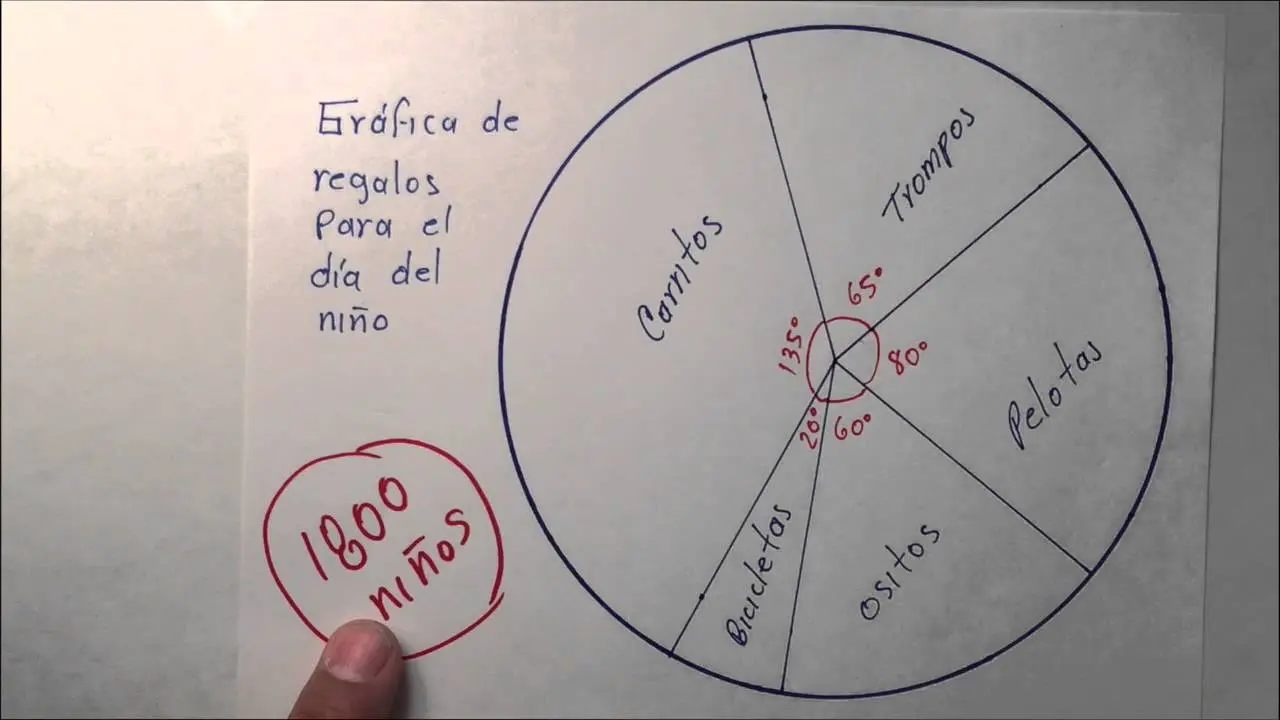 Gráfica de
regalos
para el
día del
niño
Carritos
Trompos
Pelotas
Ositos
Bicicletas
135°
65°
80°
60°
20°
1800
niños